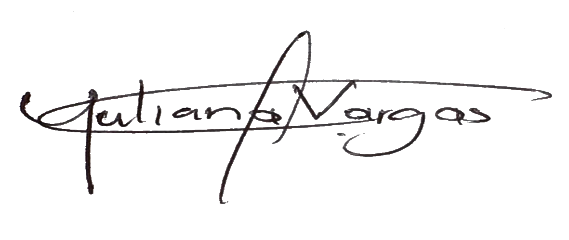 Juliana Vargas